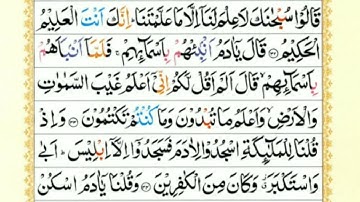 قَالُوۡا سُبۡحٰنَكَ لَا عِلۡمَ لَنَاۤ اِلَّا مَا عَلَّمۡتَنَا ؕ اِنَّكَ اَنۡتَ الۡعَلِيۡمُ
الۡحَكِيۡمُ ﴿۳۲﴾ قَالَ يٰۤاٰدَمُ اَنۡۢبِئۡهُمۡ بِاَسۡمَآئِهِمۡ ۚ فَلَمَّاۤ اَنۡۢبَاَهُمۡ
بِاَسۡمَآئِهِمۡ ۙ قَالَ اَلَمۡ اَقُلْ لَّكُمۡ اِنِّىۡۤ اَعۡلَمُ غَيۡبَ السَّمٰوٰتِ
وَالۡاَرۡضِ ۙ وَاَعۡلَمُ مَا تُبۡدُوۡنَ وَمَا كُنۡتُمۡ تَكۡتُمُوۡنَ ﴿۳۳﴾ وَاِذۡ
قُلۡنَا لِلۡمَلٰٓئِكَةِ اسۡجُدُوۡا لِاٰدَمَ فَسَجَدُوۡۤا اِلَّاۤ اِبۡلِيۡسَ ؕ اَبٰى
وَاسۡتَكۡبَرَ ٭ۗ وَكَانَ مِنَ الۡكٰفِرِيۡنَ ﴿۳۴﴾ وَقُلۡنَا يٰۤاٰدَمُ اسۡكُنۡ